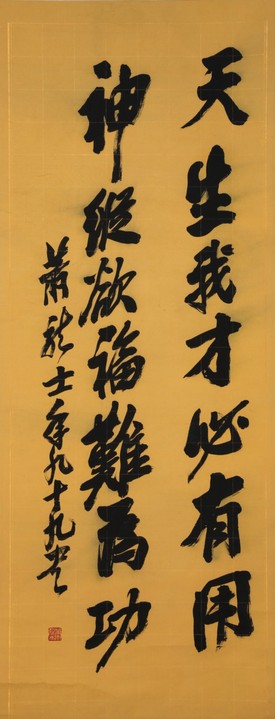 天生我才必有用
神縱欲福難為功
蕭龍士年九十九岁